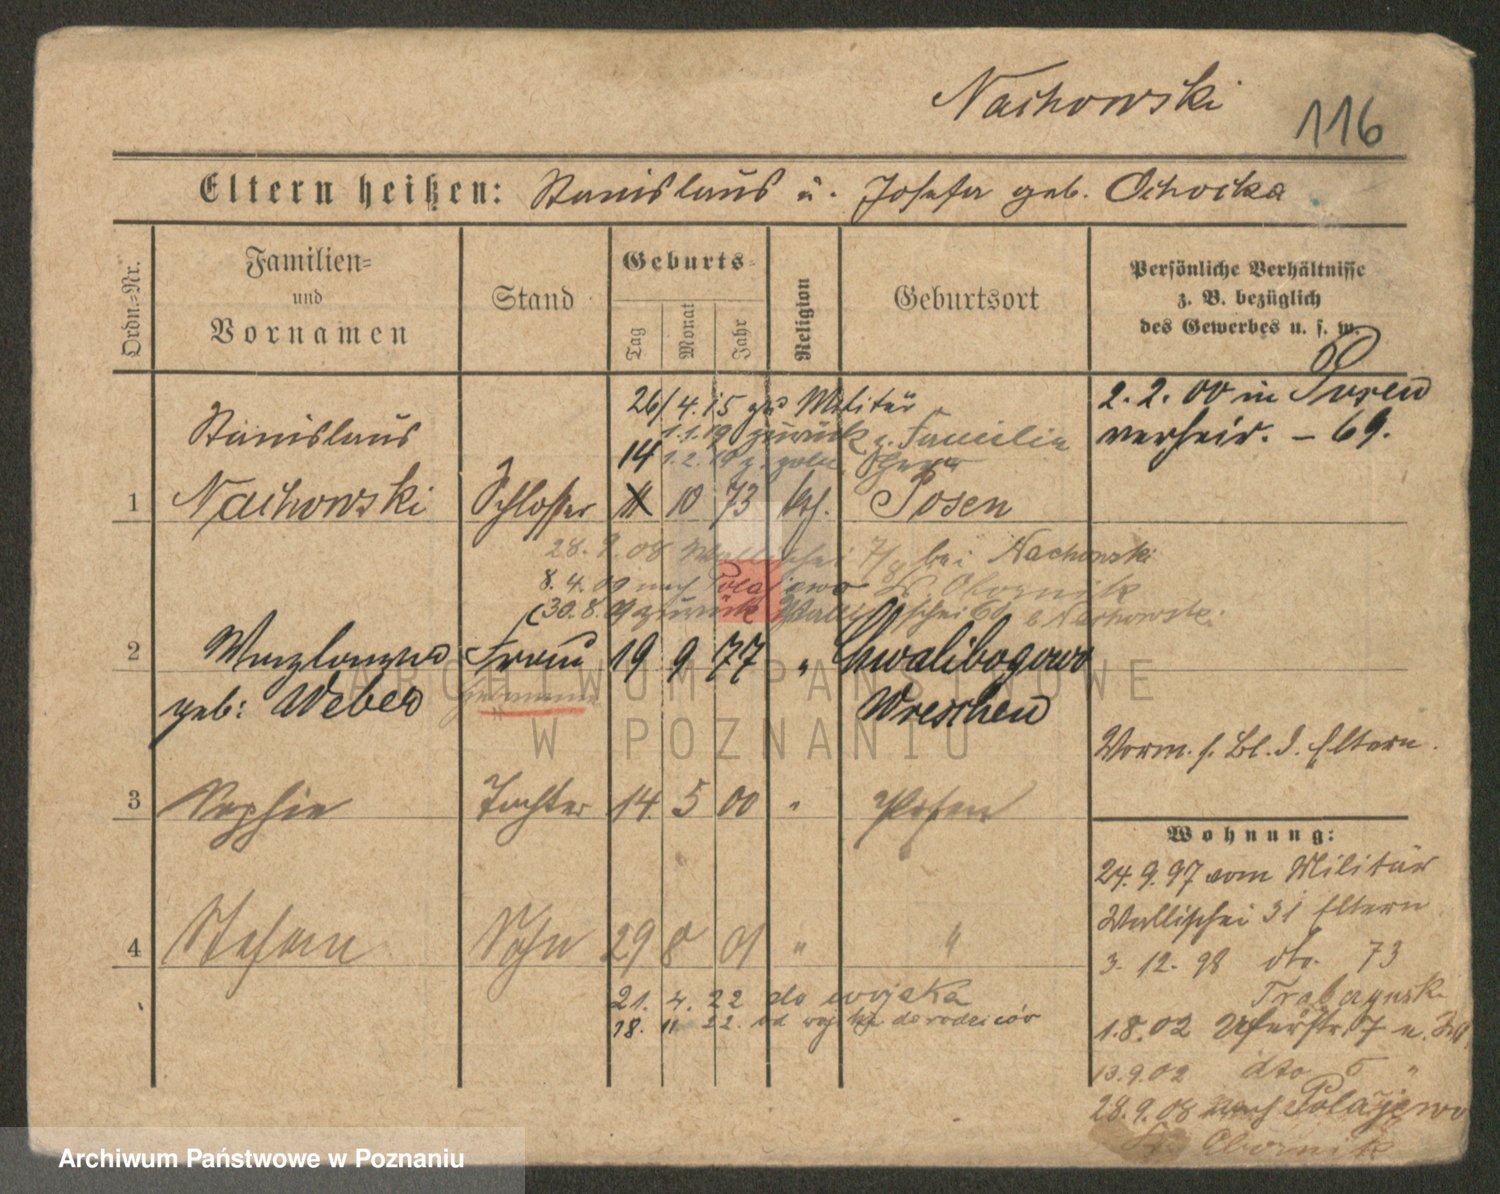 Nachowski 116
Eltern heißen: Stanislaus u. Josefa geb. Ochocka
Ordn.-Nr.
Familien-
und
Vornamen
Stand
Geburts-
Tag
Monat
Jahr
Religion
Geburtsort
Persönliche Verhältnisse
z. B. bezüglich
des Gewerbes u. s. w.
26/4.15 zum Militär
1.1.19 zurück z. Familie
14 1.2.19 z. poln.
Stanislaus
1 Nachowski Schlosser 11 10 73 kth. Posen
2.2.00 in Posen
verheir. - 69.
28.9.08 Wallischei 7/8 bei Nachowski
8.4.09 nach Polajewo Kr. Obornik
30.8.09 zurück Wallischei b. Nachowski
2 Frau 19 9 77 " Chwalibogowo
geb: Weber Wreschen
Vorm. s. Bl. d. Eltern.
3 Sophie Tochter 14 5 00 " Posen
4 Stefan Sohn 29 8 01 " "
21. 4. 22 do wojska
18. 11. 22. od wojska do rodziców
Wohnung:
24.9.97 vom Militär
Wallischei 31 Eltern
3. 12. 98 dto. 73
1.8.02 Uferstr. 7
13.9.02 dto 5 "
28.9.08 nach Polajewo
Kr. Obornik
ARCHIWUM PAŃSTWOWE
W POZNANIU
Archiwum Państwowe w Poznaniu